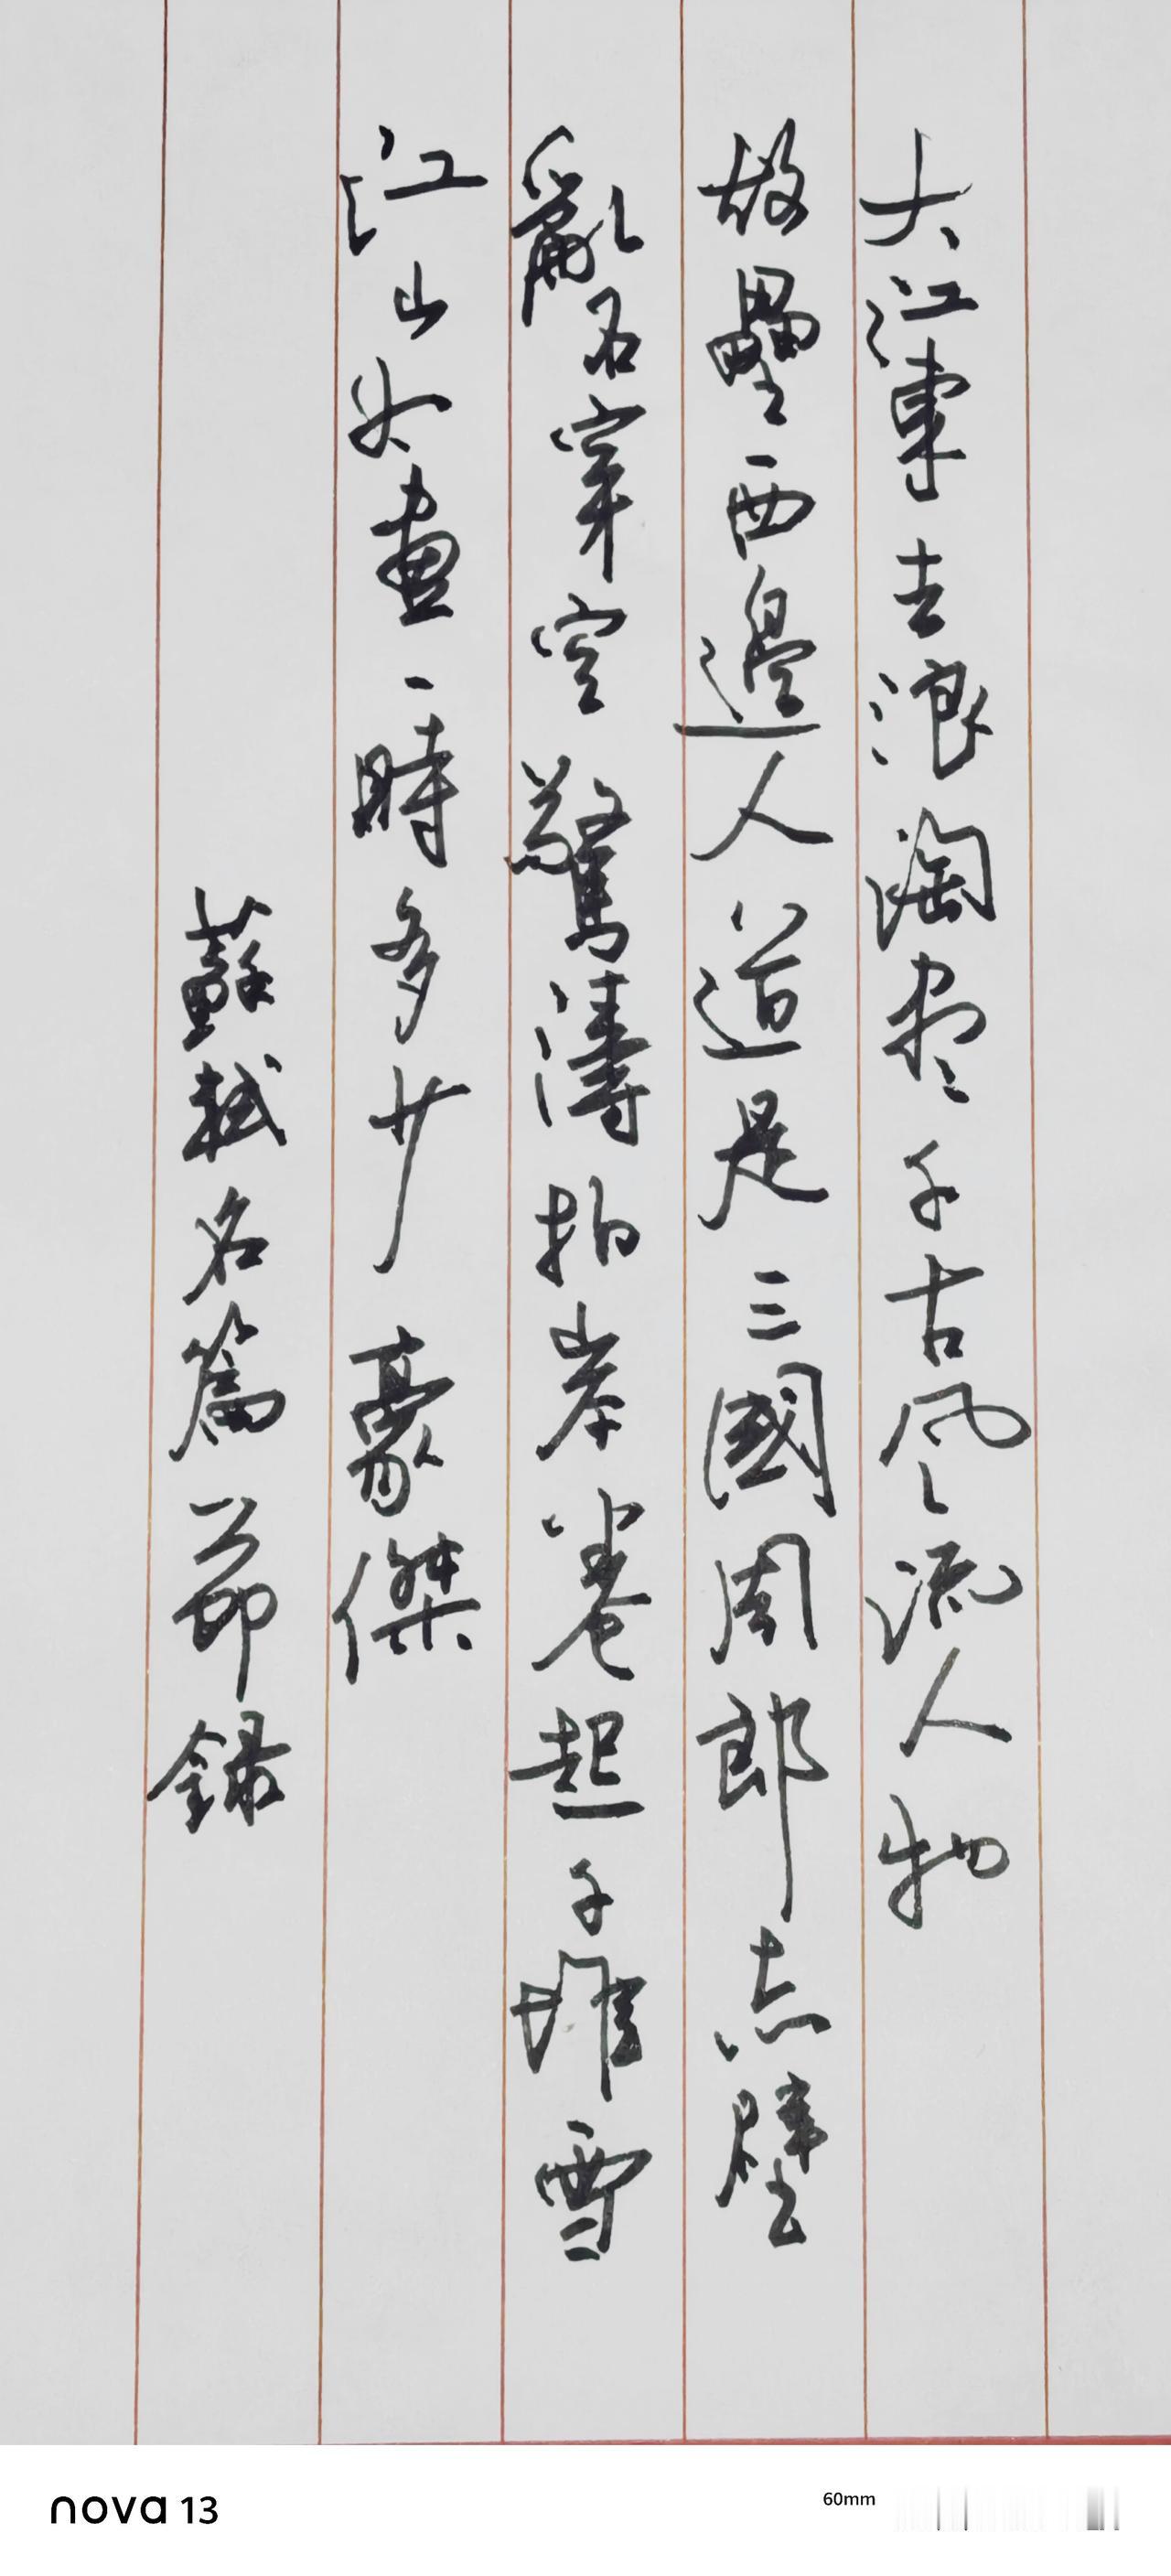 大江東去浪淘盡千古風流人物
故壘西邊人道是三國周郎赤壁
亂石穿空驚濤拍岸卷起千堆雪
江山如畫一時多少豪傑
蘇軾名篇節錄
nova 13
60mm